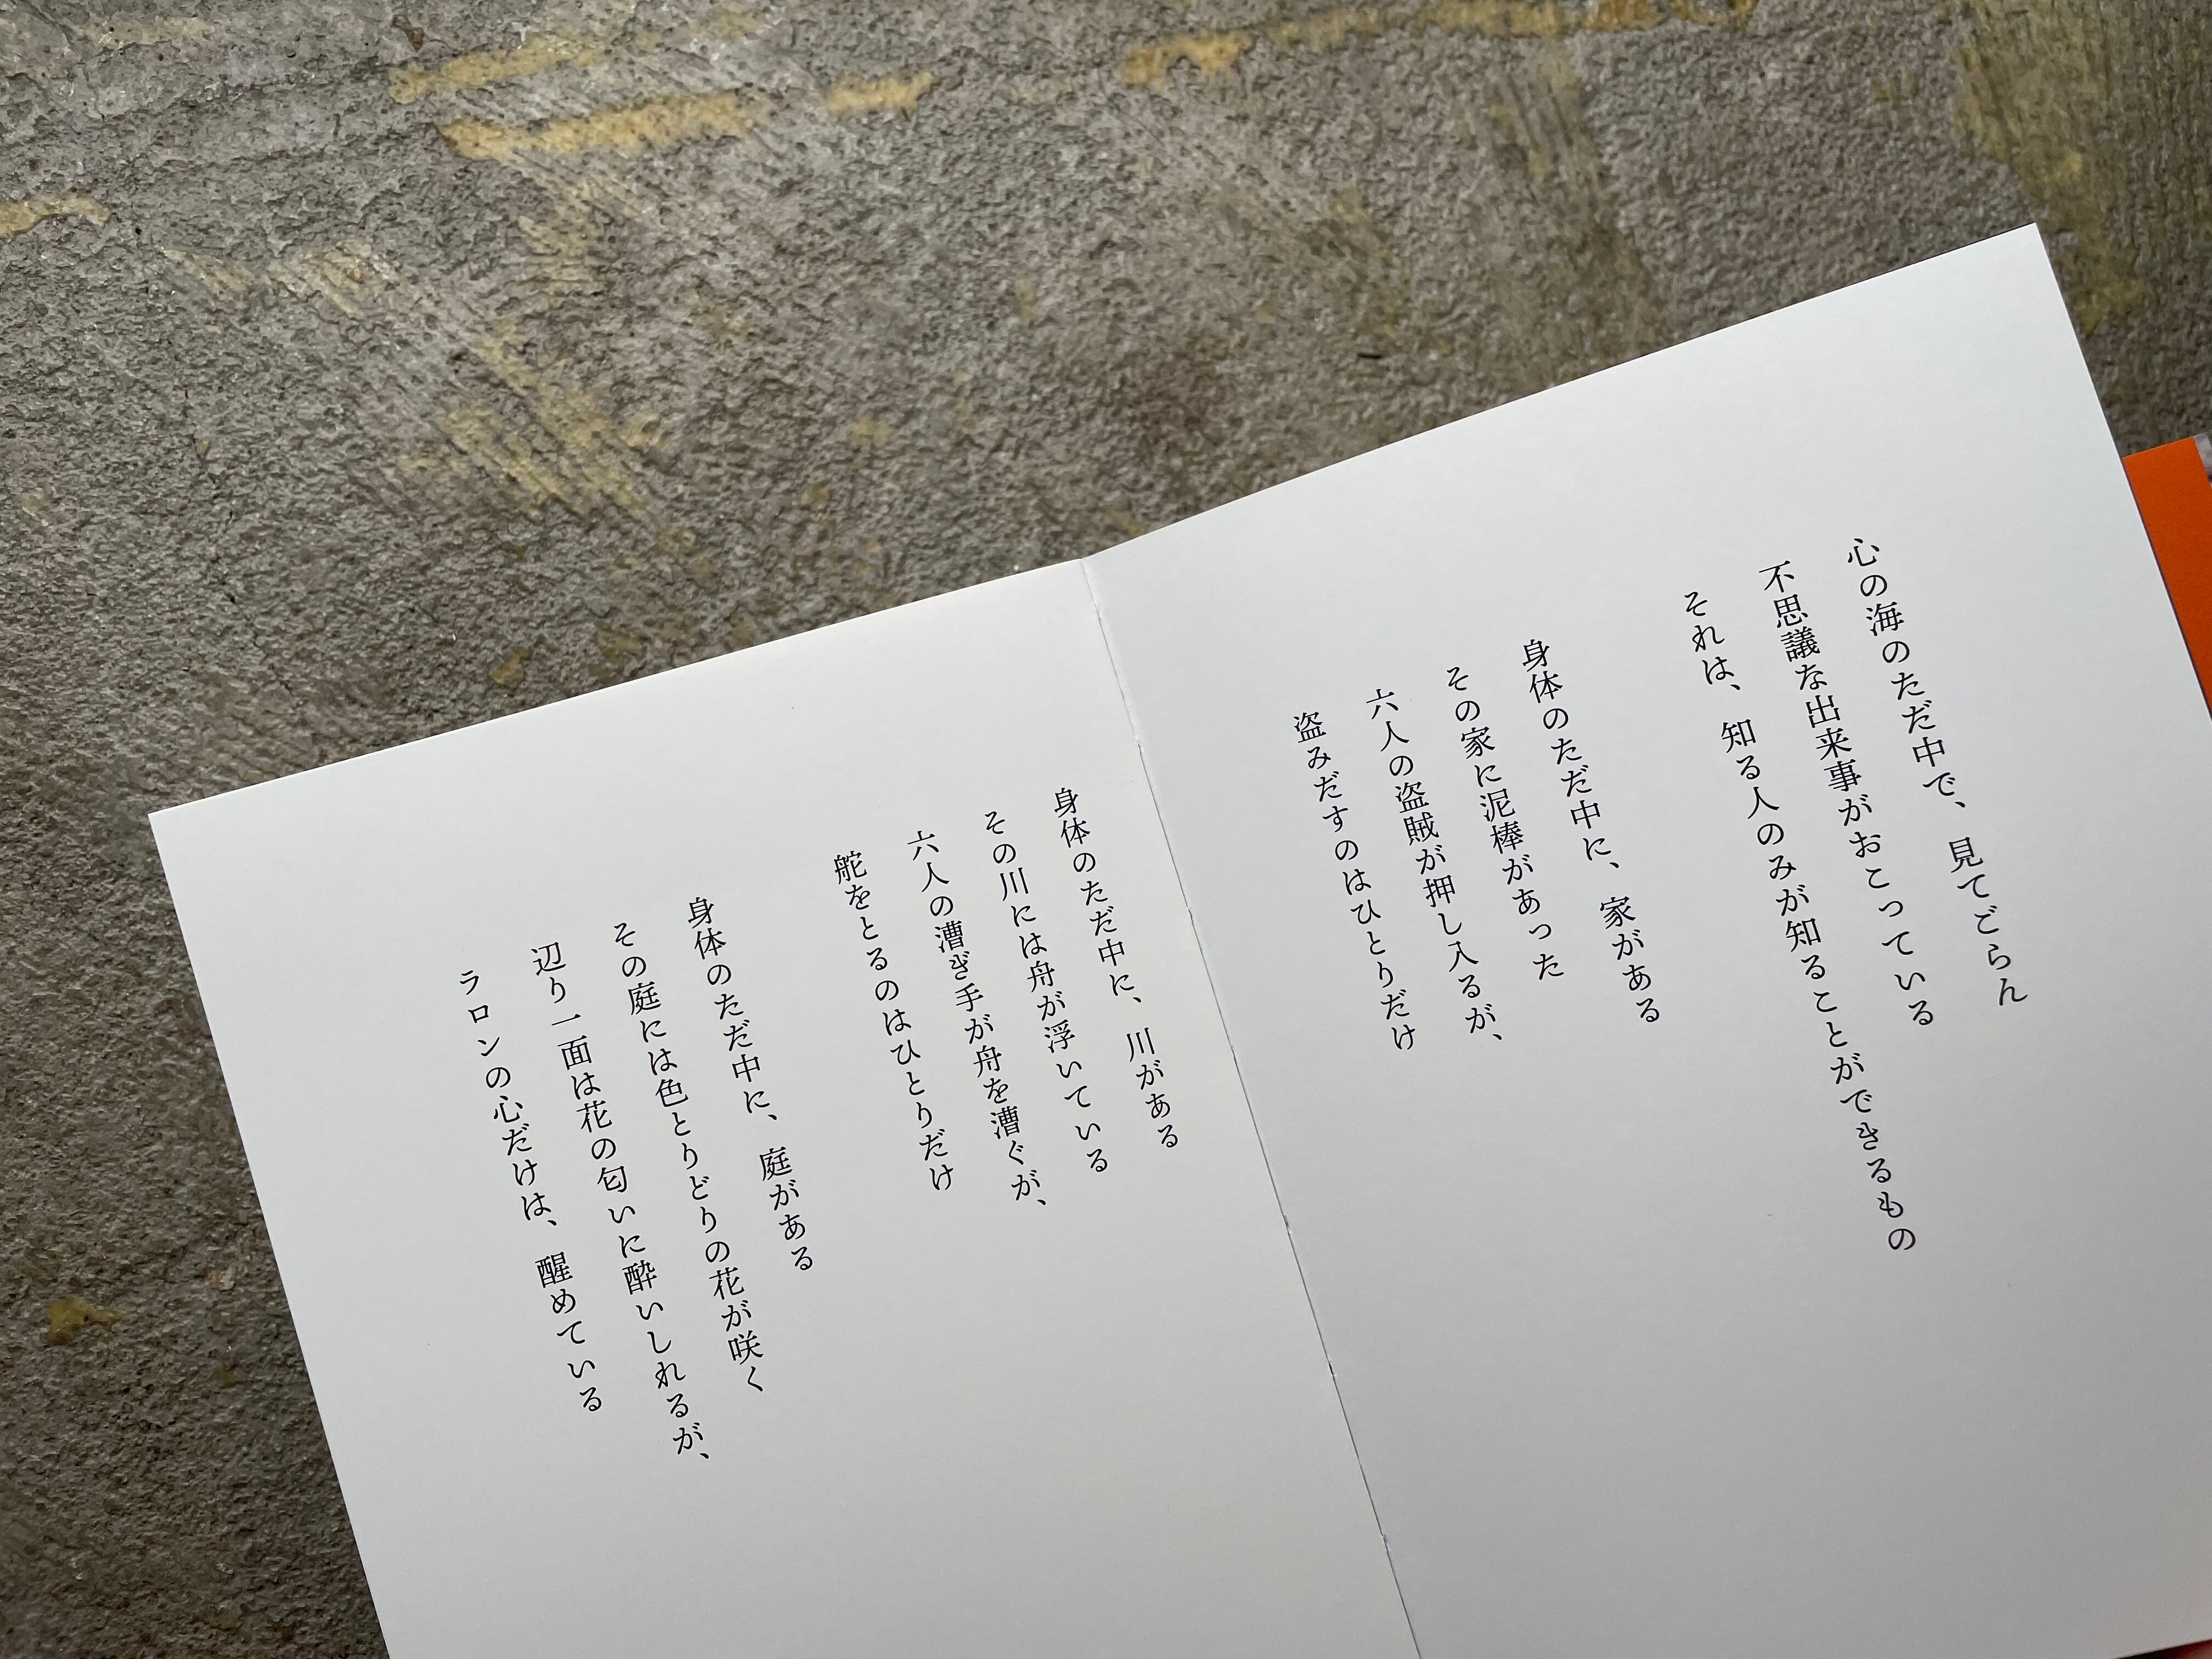 心の海のただ中で、見てごらん
不思議な出来事がおこっている
それは、知る人のみが知ることができるもの
身体のただ中に、家がある
その家に泥棒があった
六人の盗賊が押し入るが、
盗みだすのはひとりだけ
身体のただ中に、川がある
その川には舟が浮いている
六人の漕ぎ手が舟を漕ぐが、
舵をとるのはひとりだけ
身体のただ中に、庭がある
その庭には色とりどりの花が咲く
辺り一面は花の匂いに酔いしれるが、
ラロンの心だけは、醒めている